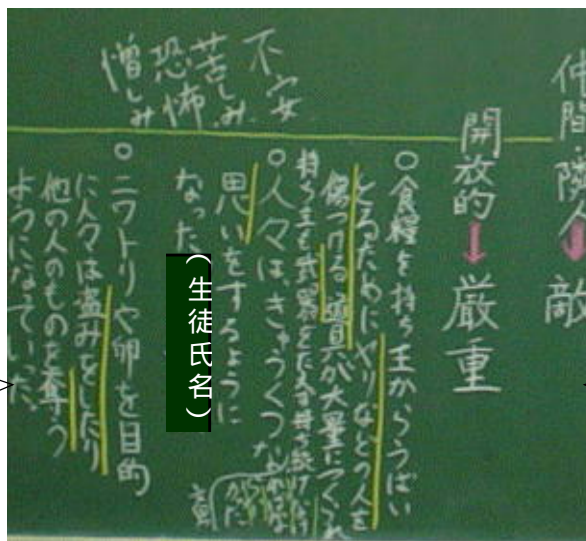 仲間・隣人→敵
開放的→厳重
不安
苦しみ
恐怖
憎しみ
○食糧を持ち主からうばい
とるためにヤリなどの人を
傷つける道具が大量につくられ
持ち主も武器をたえず持ち続け
○人々は、きゅうくつな
思いをするように
なった
(生徒氏名)
○ニワトリや卵を目的
に人々は盗みをしたり
他の人のものを奪う
ようになっていた。